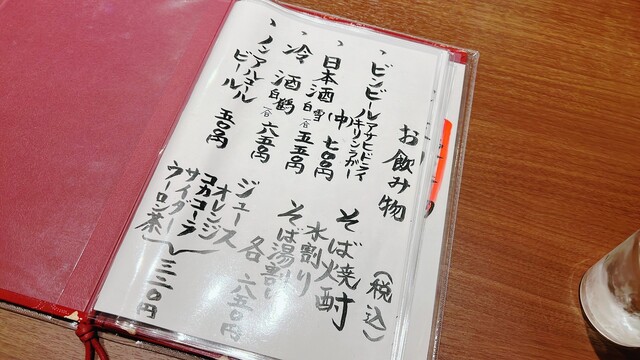 お飲み物
(税込)
、ビンビール アサヒドライ
キリンラガー
中 七〇〇円
、日本酒 白雪 一合 五五〇円
、冷酒 白鶴 一合 六五〇円
、ノンアルコール
ビール 五〇〇円
そば焼酎
水割り
そば湯割り
各 六五〇円
ジュース
オレンジ
コカコーラ
サイダー
ウーロン茶
三二〇円